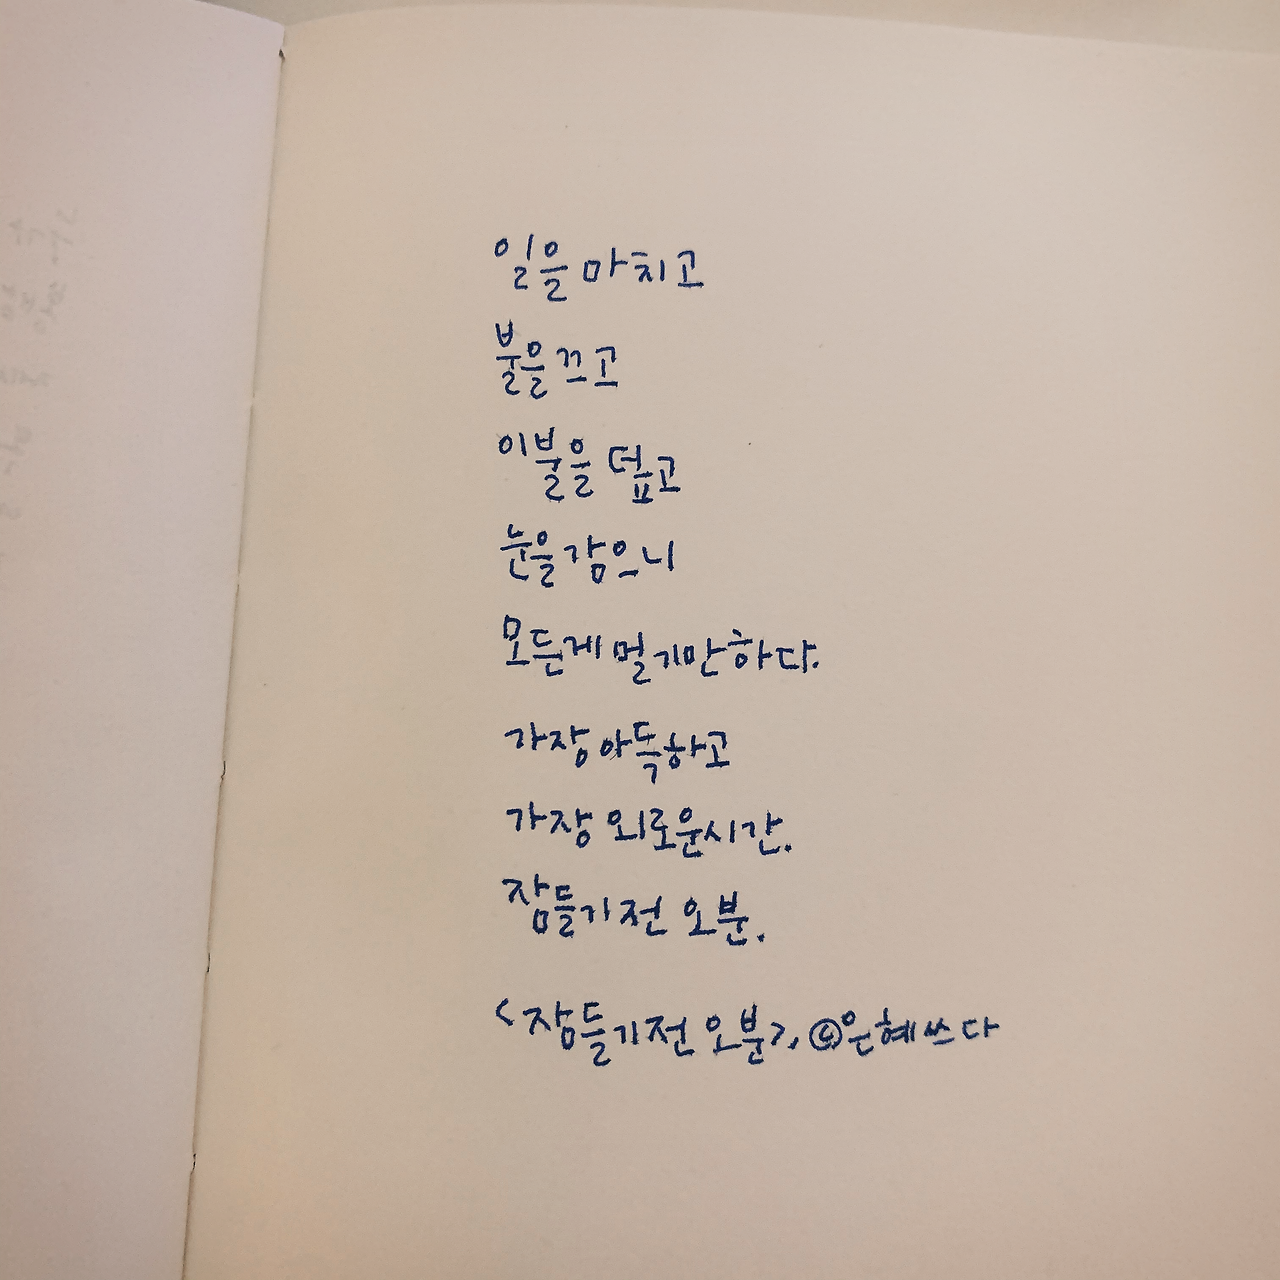 일을 마치고
불을 끄고
이불을 덮고
눈을 감으니
모든게 멀기만 하다.
가장 아득하고
가장 외로운 시간.
잠들기 전 오분.
<잠들기 전 오분>, ©은혜쓰다